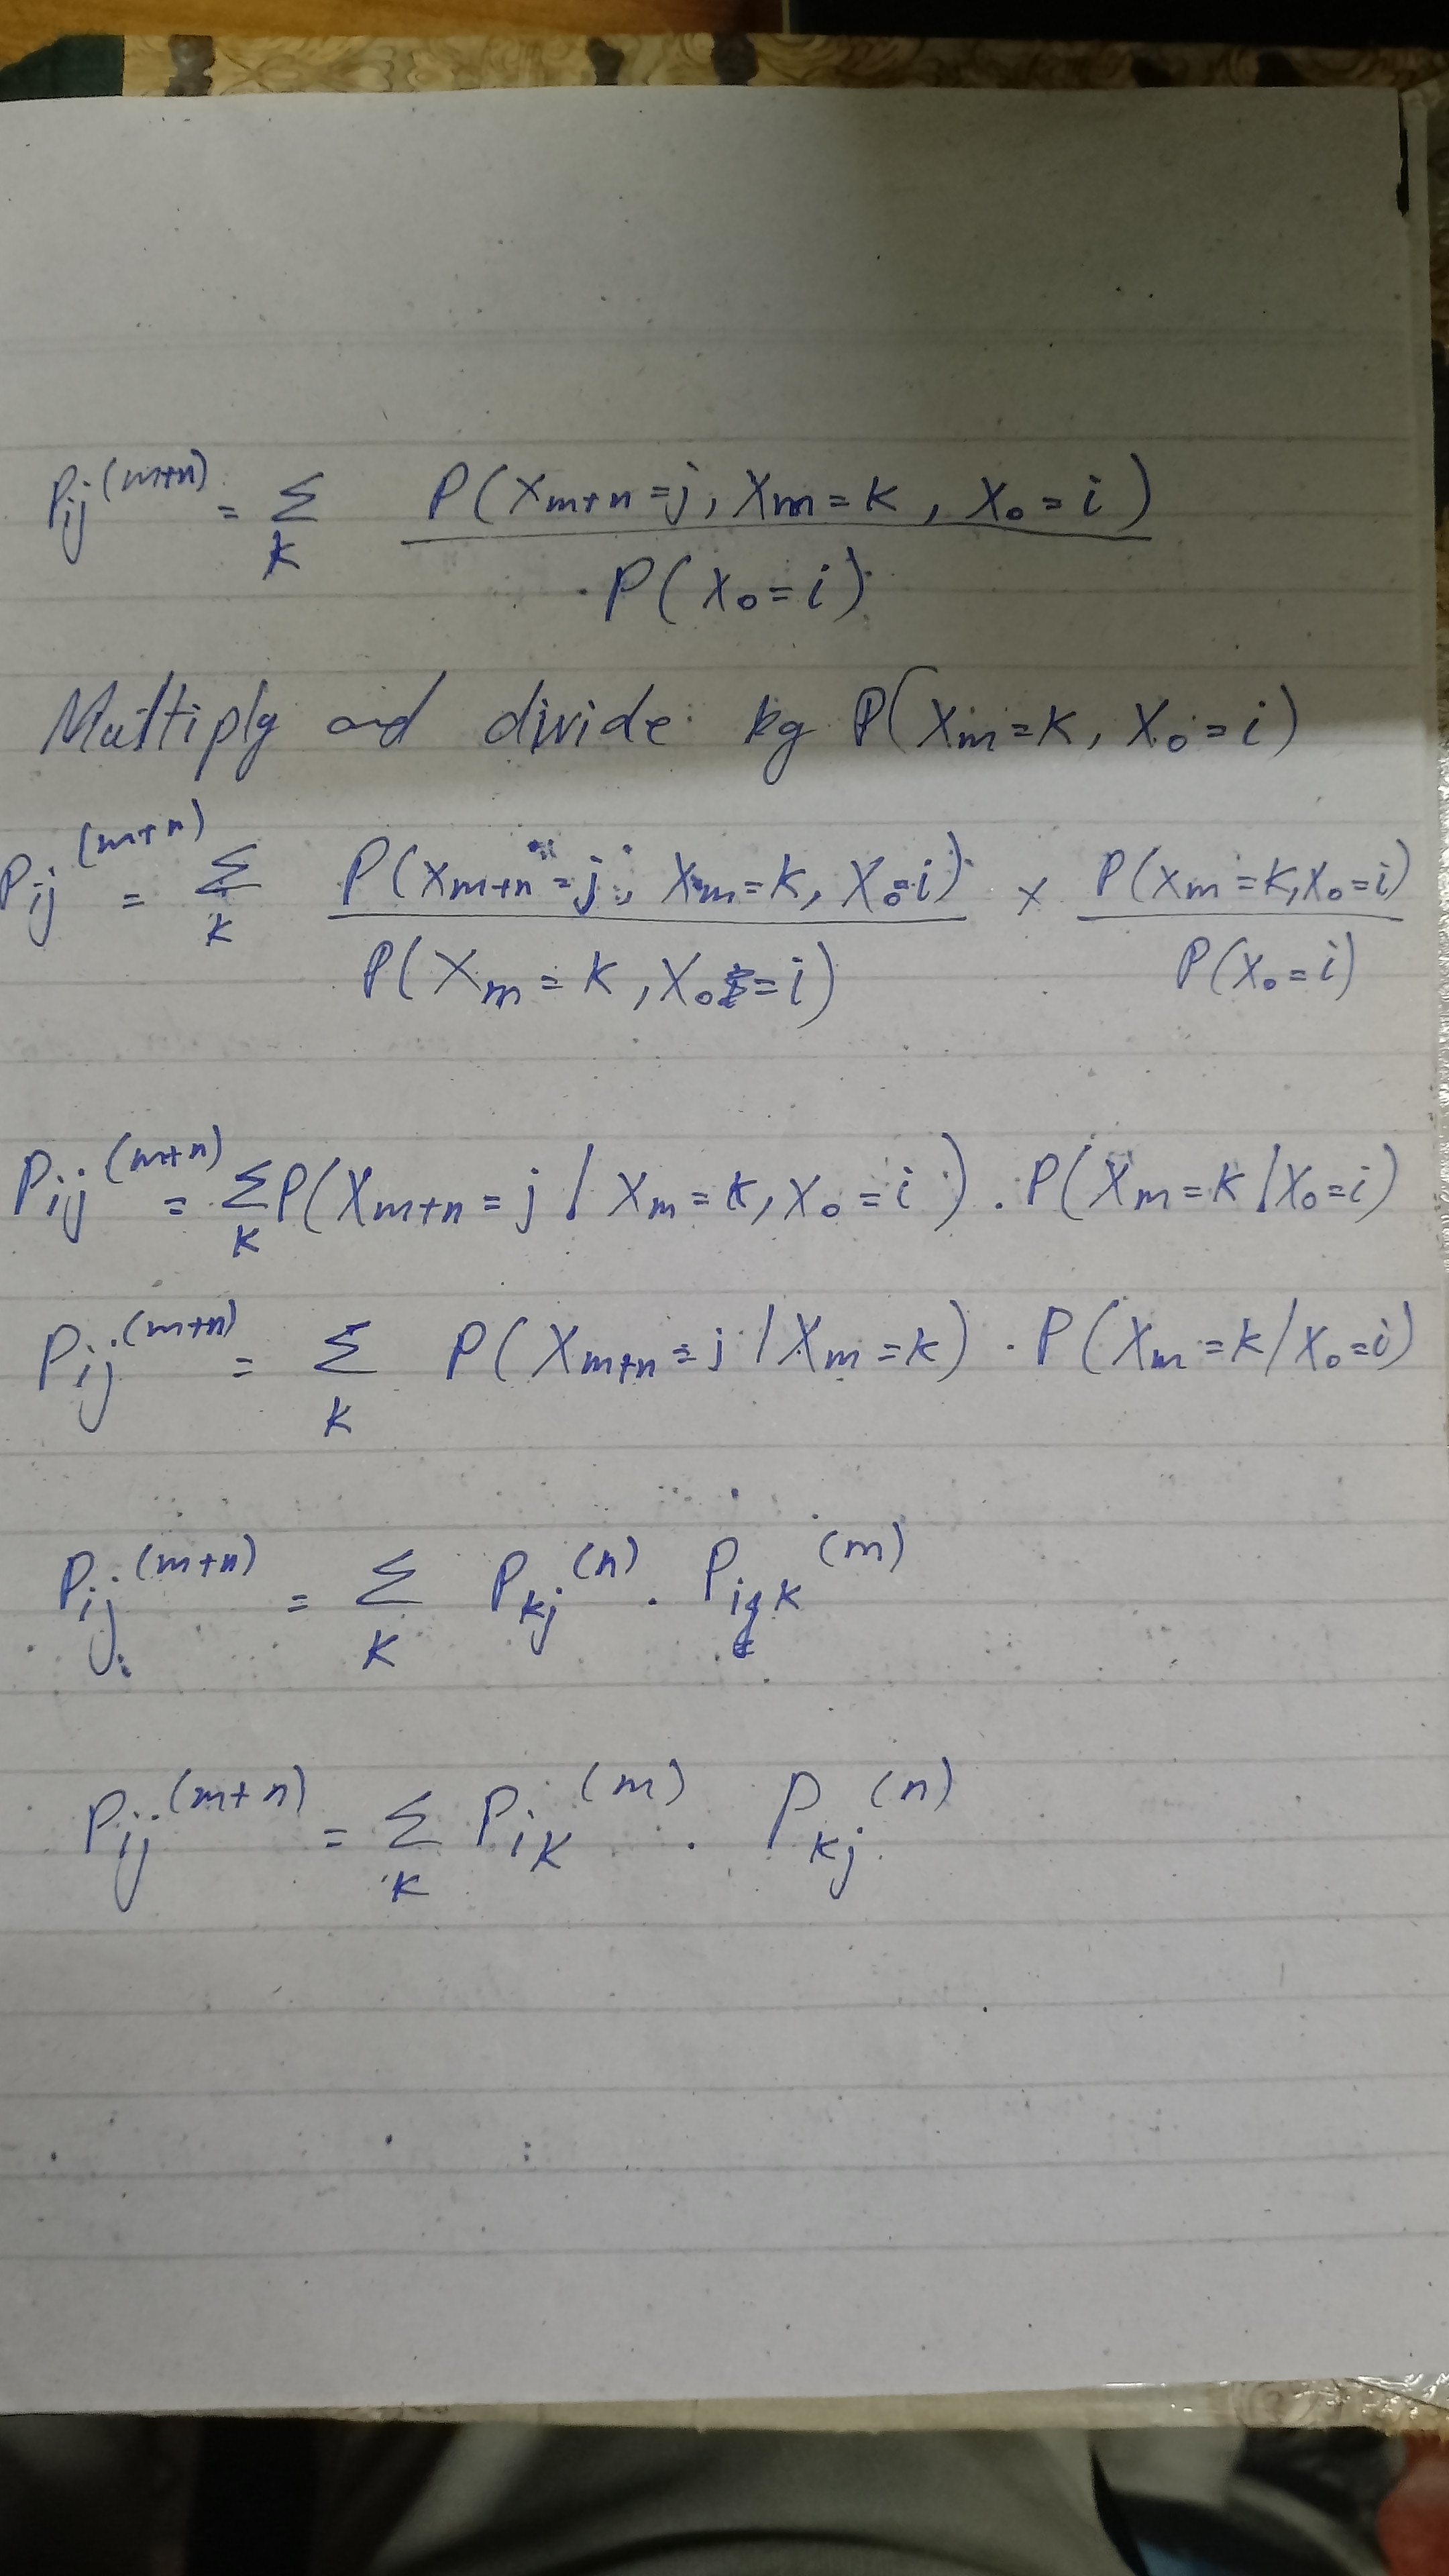 Pij^(m+n) = Σ_k P(X_m+n = j, X_m = k, X_0 = i) / P(X_0 = i)
Multiply and divide by P(X_m = k, X_0 = i)
Pij^(m+n) = Σ_k P(X_m+n = j, X_m = k, X_0 = i) / P(X_m = k, X_0 = i) × P(X_m = k, X_0 = i) / P(X_0 = i)
Pij^(m+n) = Σ_k P(X_m+n = j / X_m = k, X_0 = i) . P(X_m = k / X_0 = i)
Pij^(m+n) = Σ_k P(X_m+n = j / X_m = k) . P(X_m = k / X_0 = i)
Pij^(m+n) = Σ_k P_kj^(n) . P_ik^(m)
Pij^(m+n) = Σ_k P_ik^(m) . P_kj^(n)